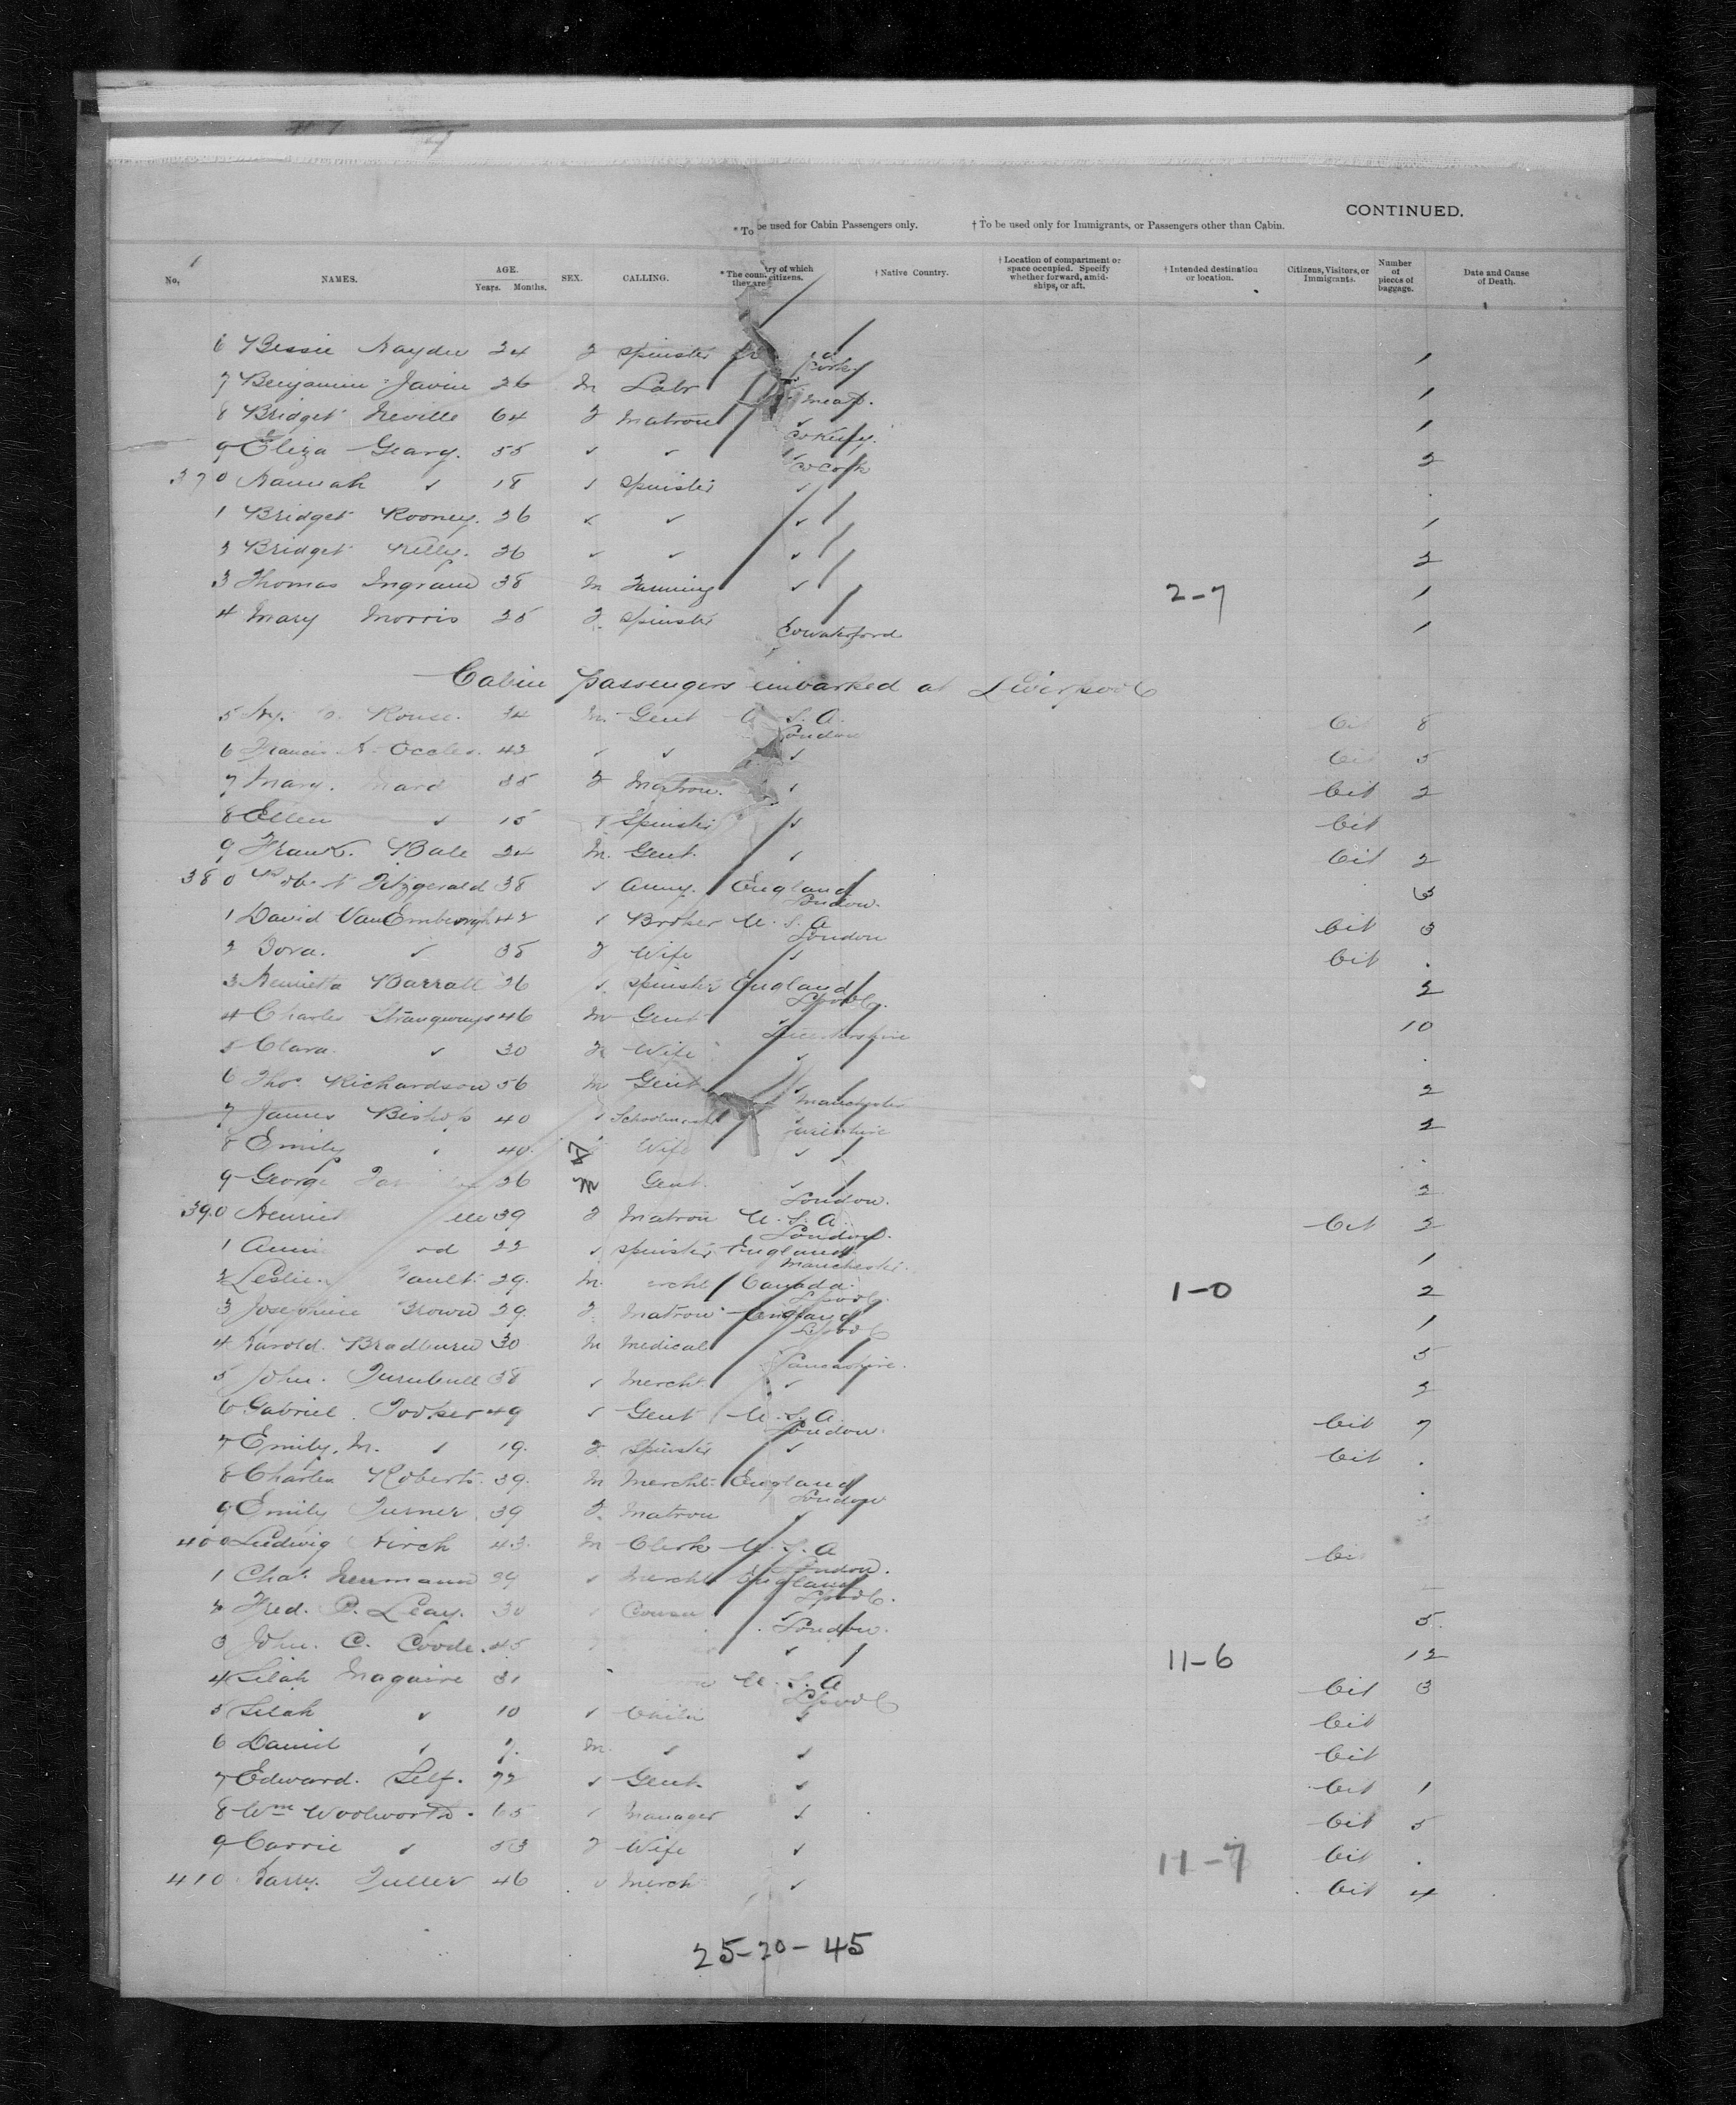 CONTINUED.
* To be used for Cabin Passengers only. † To be used only for Immigrants, or Passengers other than Cabin.
No. NAMES. AGE. Years. Months. SEX. CALLING. * The country of which they are citizens. † Native Country. † Location of compartment or space occupied. Specify whether forward, amidships, or aft. † Intended destination or location. Citizens, Visitors, or Immigrants. Number of pieces of baggage. Date and Cause of Death.
6 Bessie Hayden 24 F Spinster 1
7 Benjamin 26 M Labr 1
8 Bridget Neville 64 F Matron Co Kerry. 1
9 Eliza Geary. 55 ✓ ✓ Co Cork 2
370 Hannah ✓ 18 ✓ Spinster ✓
1 Bridget Rooney. 26 ✓ ✓ ✓ 1
2 Bridget Kelly. 26 ✓ ✓ ✓ 2
3 Thomas Ingram 38 M ✓ 2-7 1
4 Mary Morris 25 F. Spinster Co Waterford 1
Cabin passengers embarked at Liverpool
5 Rouse. 34 M. Gent U.S.A. London Cit 8
6 Francis A. Eccles. 42 ✓ ✓ ✓ Cit 5
7 Mary. Ward 35 F Matron. ✓ Cit 2
8 Ellen ✓ 15 ✓ Spinster ✓ Cit
9 Frank. Bale 24 M. Gent. ✓ Cit 2
380 Robert Fitzgerald 38 ✓ Army. England London. 3
1 David VanEmburgh 42 ✓ Broker U.S.A London Cit 3
2 Dora. ✓ 35 F Wife ✓ Cit .
3 Henrietta Barratt 26 ✓ Spinster England Lpool. 2
4 Charles Strangways 46 M Gent Leicestershire 10
5 Clara. ✓ 30 F Wife ✓ .
6 Thos. Richardson 56 M Gent Manchester 2
7 James Bishop 40 ✓ Schoolmaster 2
8 Emily ✓ 40. F Wife ✓ .
9 George 26 M Gent. London. 2
390 39 F Matron U.S.A. London. Cit 2
1 22 ✓ Spinster England Manchester. 1
2 Leslie Gault 29. M. Canada Lpool. 1-0 2
3 Josephine Brown 29. F. Matron England Lpool 1
4 Harold. Bradburn 30 M Medical Lancashire. 5
5 John. Turnbull 38 ✓ Mercht. ✓ 2
6 Gabriel Tooker 49 ✓ Gent U.S.A. London. Cit 7
7 Emily. M. ✓ 19. F. Spinster ✓ Cit .
8 Charles Roberts. 39. M Mercht. England London .
9 Emily Turner 39 F. Matron ✓
400 Ludwig Hirch 43. M Clerk U.S.A London. Cit
1 Chas. Herrmann 39 ✓ Mercht England Lpool.
2 Fred. P. Leay. 30 London. 5
3 John. C. Coode. 45 ✓ 11-6 12
4 Lilah Magaire 31 U.S.A Lpool Cit 3
5 Lilah ✓ 10 ✓ Child ✓ Cit
6 Daniel ✓ 7. M. ✓ ✓ Cit
7 Edward. Self. 72 ✓ Gent. ✓ Cit 1
8 Wm Woolworth. 65 ✓ Manager ✓ Cit 5
9 Carrie ✓ 53 F Wife ✓ 11-7 Cit .
410 Harry. Fuller 46 ✓ Merch ✓ Cit 4
25-20-45